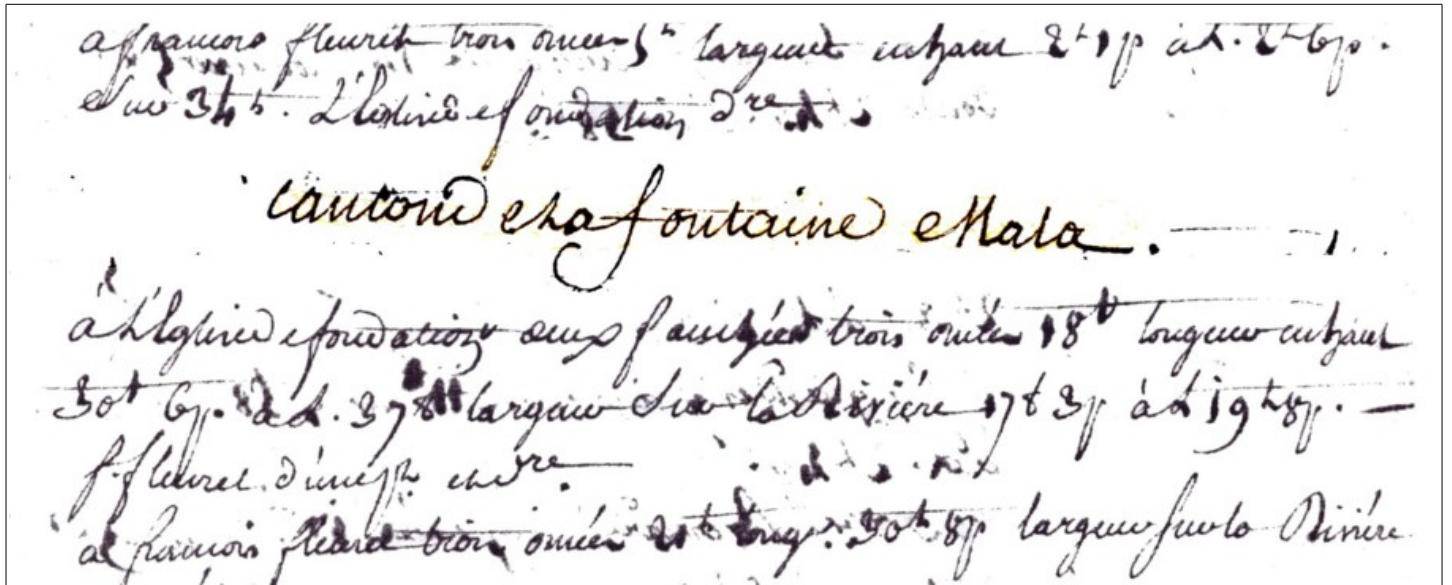 a francois fleuret trois omées 5t largeur enhaut 2t 1p à d. 2t 6p.
Sur 34t. L'Eglise et fondation dre
Canton de La fontaine Mala.
à L'Eglise et fondation deux fauchées trois omées 18t longueur enhaut
30t 6p. à d. 37t largeur Sur la Riviére 17t 3p à d 19t 8p. —
f. fleuret d'une pt. et dre.
a francois fleuret trois omées 21t long. 30t 8p largeur sur la Riviére